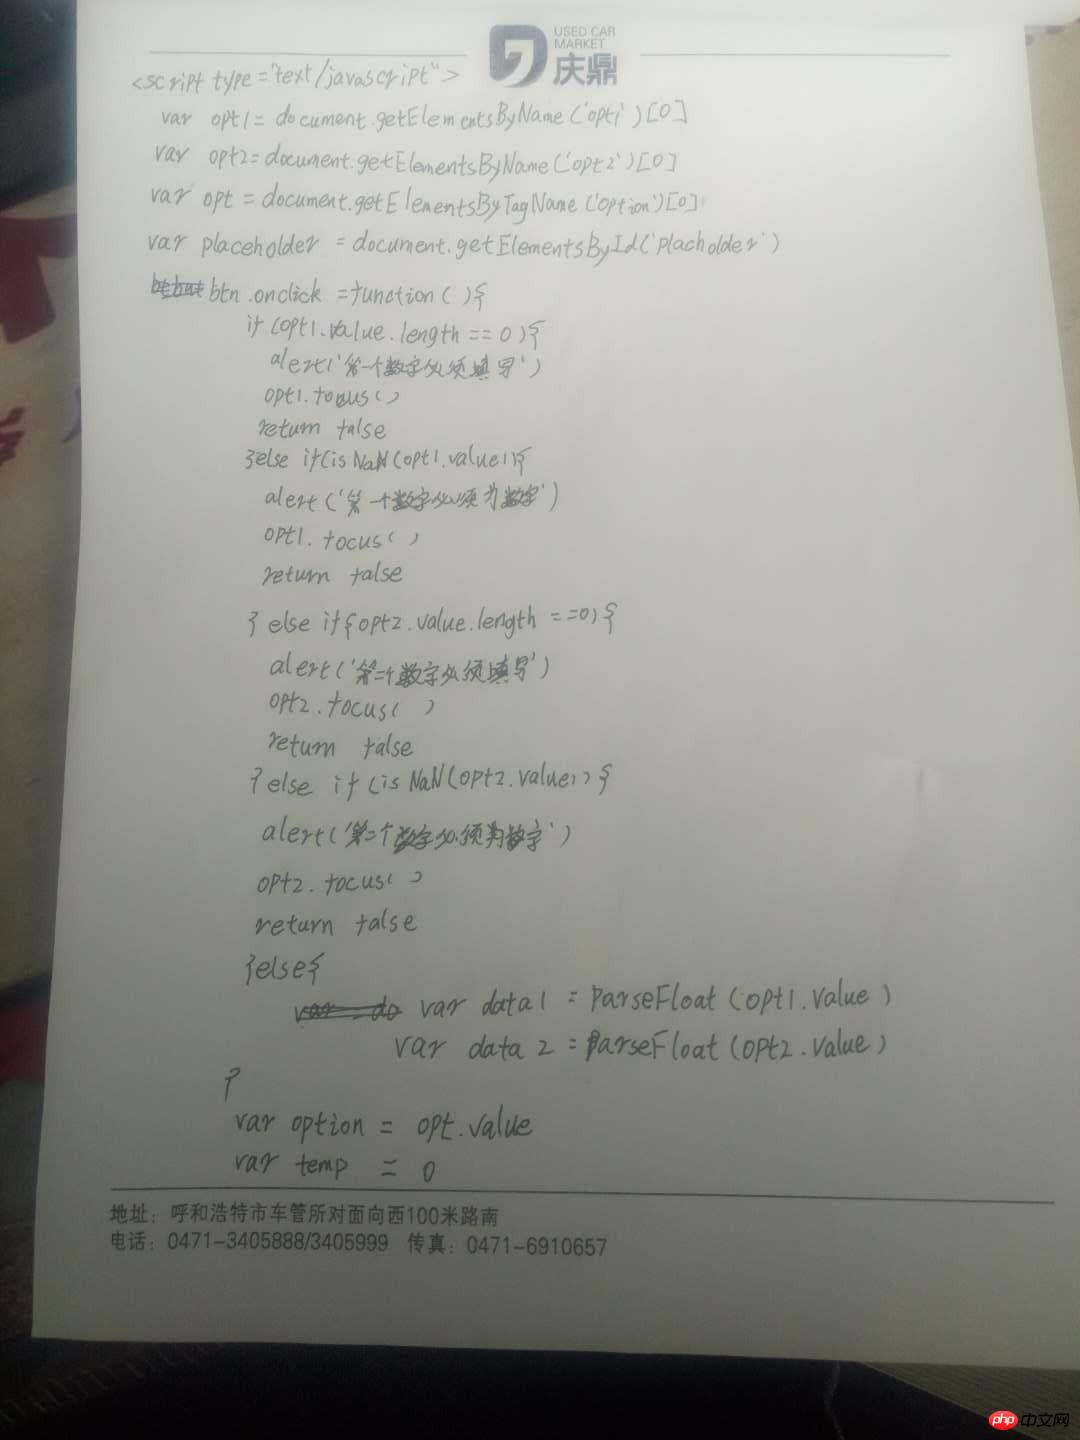 USED CAR
MARKET
庆鼎
<script type="text/javascript">
var opt1= document.getElementsByName('opt1')[0]
var opt2=document.getElementsByName('opt2')[0]
var opt = document.getElementsByTagName('option')[0]
var placeholder = document.getElementsById('placholder')
btn.onclick =function( ){
if (opt1.value.length == 0){
alert('第一个数字必须填写')
opt1.focus()
return false
}else if(isNaN(opt1.value)){
alert('第一个数字必须为数字')
opt1.focus()
return false
} else if{opt2.value.length ==0){
alert('第二个数字必须填写')
opt2.focus( )
return false
}else if (isNaN(opt2.value)){
alert('第二个数字必须为数字')
opt2.focus()
return false
}else{
var data1 = parseFloat(opt1.value)
var data2 = parseFloat(opt2.value)
}
var option = opt.value
var temp = 0
地址：呼和浩特市车管所对面向西100米路南
电话：0471-3405888/3405999 传真：0471-6910657
php中文网